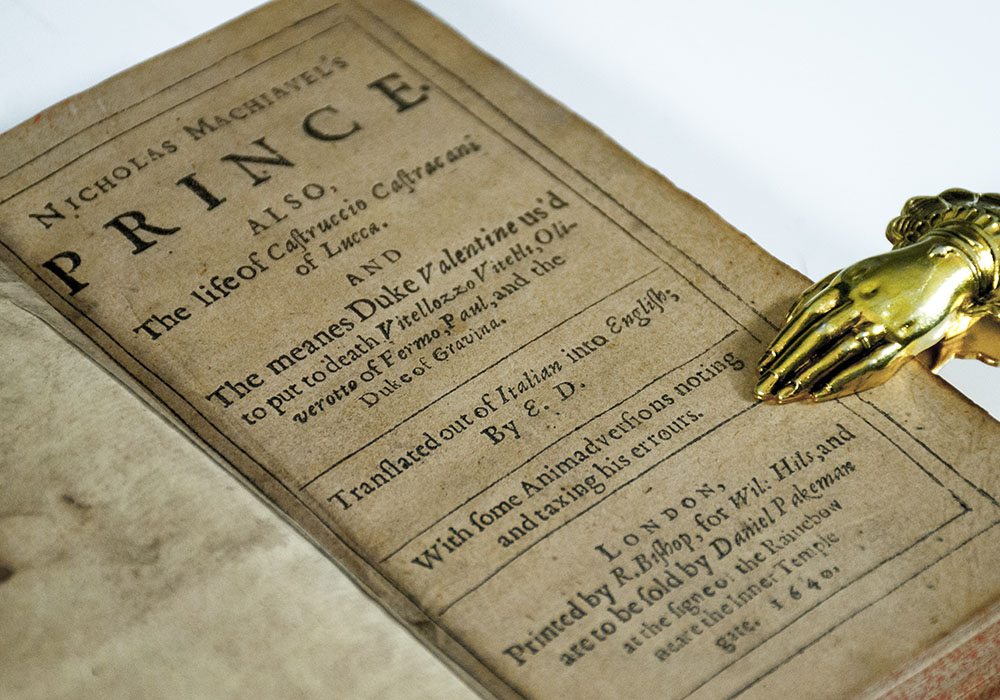 NICHOLAS MACHIAVEL'S
PRINCE.
ALSO,
The life of Caſtruccio Caſtracani
of Lucca.
AND
The meanes Duke Valentine us'd
to put to death Vitellozzo Vitelli, Oli-
verotto of Fermo, Paul, and the
Duke of Gravina.
Tranſlated out of Italian into Engliſh;
By E. D.
With ſome Animadverſions noting
and taxing his errours.
LONDON,
Printed by R. Biſhop, for Wil: Hils, and
are to be ſold by Daniel Pakeman
at the ſigne of the Rainebow
neare the Inner Temple
gate. 1640.